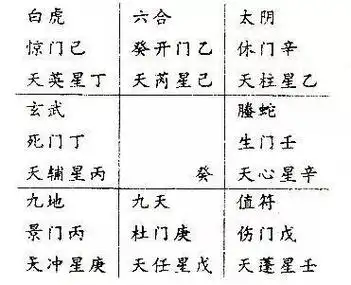 白虎 六合 太阴
惊门己 癸开门乙 休门辛
天英星丁 天芮星己 天柱星乙
玄武 螣蛇
死门丁 生门壬
天辅星丙 癸 天心星辛
九地 九天 值符
景门丙 杜门庚 伤门戊
天冲星庚 天任星戊 天蓬星壬